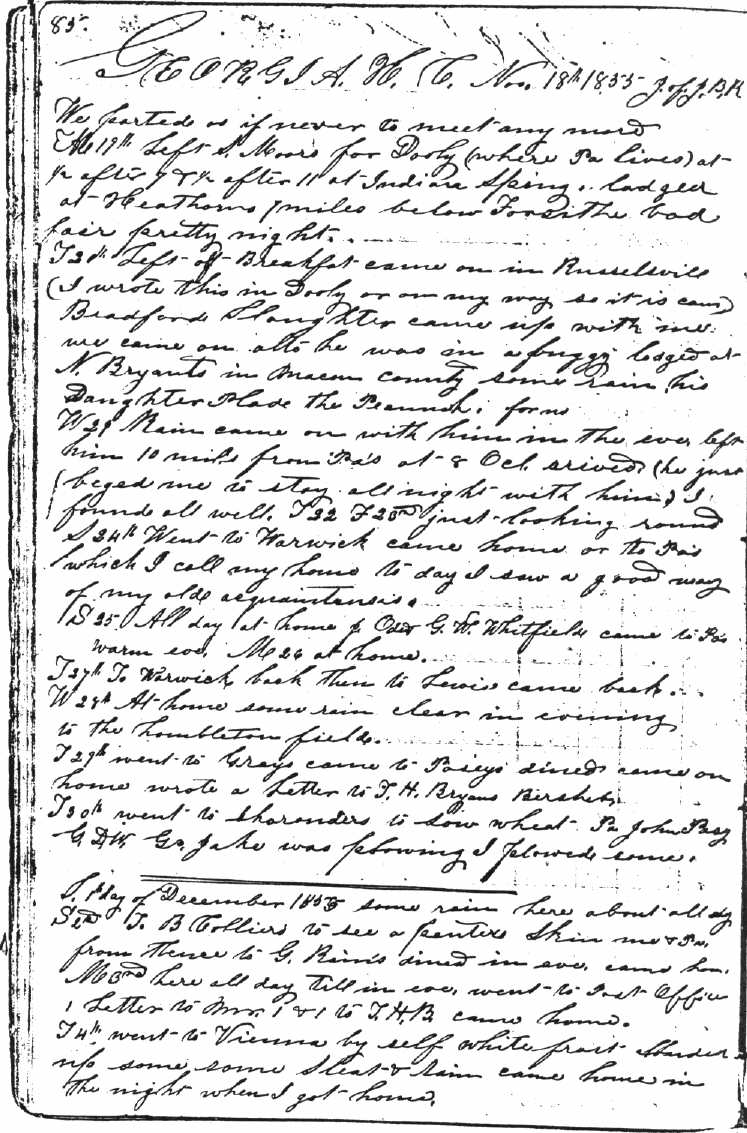 85.
GEORGIA. H. C. Nov. 18th 1855 J of J. B. R
We parted as if never to meet any more
The 19th Left S. Moors for Dooly (where Pa lives) at
½ after 7 & ½ after 11 at Indian Spring. lodged
at Heathorns 7 miles below Forsithe bad
fair pretty night.
T 20th Left off Breakfat came on in Russelsvill
(I wrote this in Dooly or on my way so it is
Bradford Slaughter came up with me
we came on alto he was in a buggy lodged at
N. Bryants in Macon county some rain, his
Daughter Plade the Peannoh. for us
W 21 Rain came on with him in the eve left
him 10 mils from Pa's at 8 Ocl. arived (he just
beged me to stay all night with him) I
found all well. T 22 F 23rd just looking round
S 24th Went to Warwick came home or to Pa's
(which I call my home to day I saw a good many
of my olde acquaintensis.
S 25. All day at home G. W. Whitfield came to Pa's
warm eve. M 26 at home.
T 27th To Warwick back then to Lewis came back.
W 28th At home some rain clear in evening
to the hombleton fields.
T 29th went to Grays came to Poseys dined came on
home wrote a Letter to T. H. Bryans
30th went to to sow wheat Pa John Posy
G D W Jake was plowing I plowed some.
S. 1st day of December 1855 some rain here about all dy
S 2nd To B Colliers to see a penters Skin me & Pa.
from thence to G. Rains dined in eve. came hom.
M 3rd here all day till in eve. went to Post Office
1 Letter to Mr. 1 & 1 to T. H. B came home.
T 4th went to Vienna by self white frost
up some some sleat & rain came home in
the night when I got home.